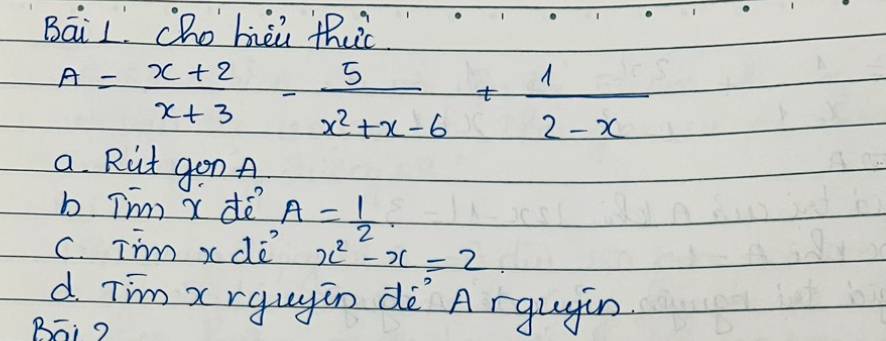 Bài 1. Cho biểu thức
A = \frac{x+2}{x+3} - \frac{5}{x^2+x-6} + \frac{1}{2-x}
a. Rút gọn A.
b. Tìm x để A = \frac{1}{2}.
c. Tìm x để x^2 - x = 2.
d. Tìm x nguyên để A nguyên.
Bài 2